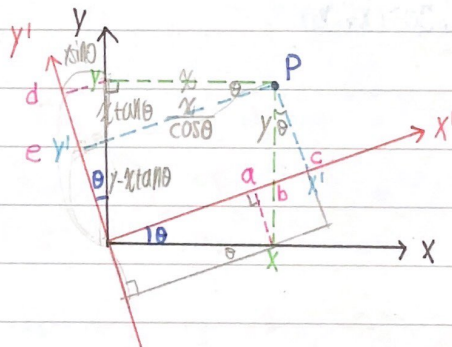 y'
Y
xsinθ
d
y
x
θ
P
xtanθ
x
cosθ
yθ
e
y'
X'
θ
y-xtanθ
a
b
c
x'
θ
θ
x
X